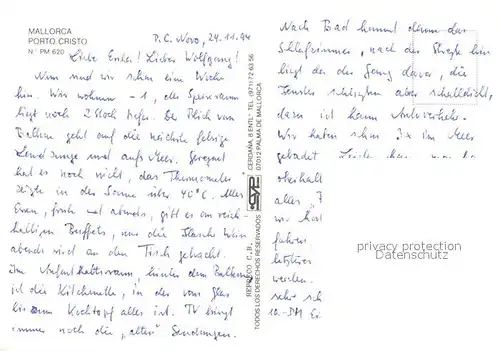 MALLORCA
PORTO CRISTO
N.° PM 620
P.C. Novo, 24.11.94
Liebe Erika! Lieber Wolfgang!
Nun sind wir schon eine Woche
hier. Wir wohnen - 1, der Speiseraum
liegt noch 2 Stock tiefer. Der Blick vom
Balkon geht auf die nächste felsige
Landzunge und aufs Meer. Geregnet
hat es noch nicht, das Thermometer
zeigte in der Sonne über 40°C. Alles
Essen, früh und abends, gibt es am reich-
haltigen Buffets, nur die Flasche Wein
abends wird an den Tisch gebracht.
Im Aufenthaltsraum hinter dem Balkon
ist die Kitchenette, in der vom Glas
bis zum Kochtopf alles ist. TV bringt
immer noch die "alten" Sendungen.
REPROCO C., B.
TODOS LOS DERECHOS RESERVADOS
CERDAÑA, 8 ENTL.° TEL. (971) 72 63 56
07012 PALMA DE MALLORCA
Nach Bad kommt dann das
Schlafzimmer, nach der Straße hin
liegt der Gang davor, die
Fenster schützten aber schalldicht,
dazu ist kaum Autoverkehr.
Wir haben schon 3x im Meer
gebadet
oberhalb
alles
wir
fahren.
letzteres
werden.
sehr
10.-DM
privacy protection
Datenschutz